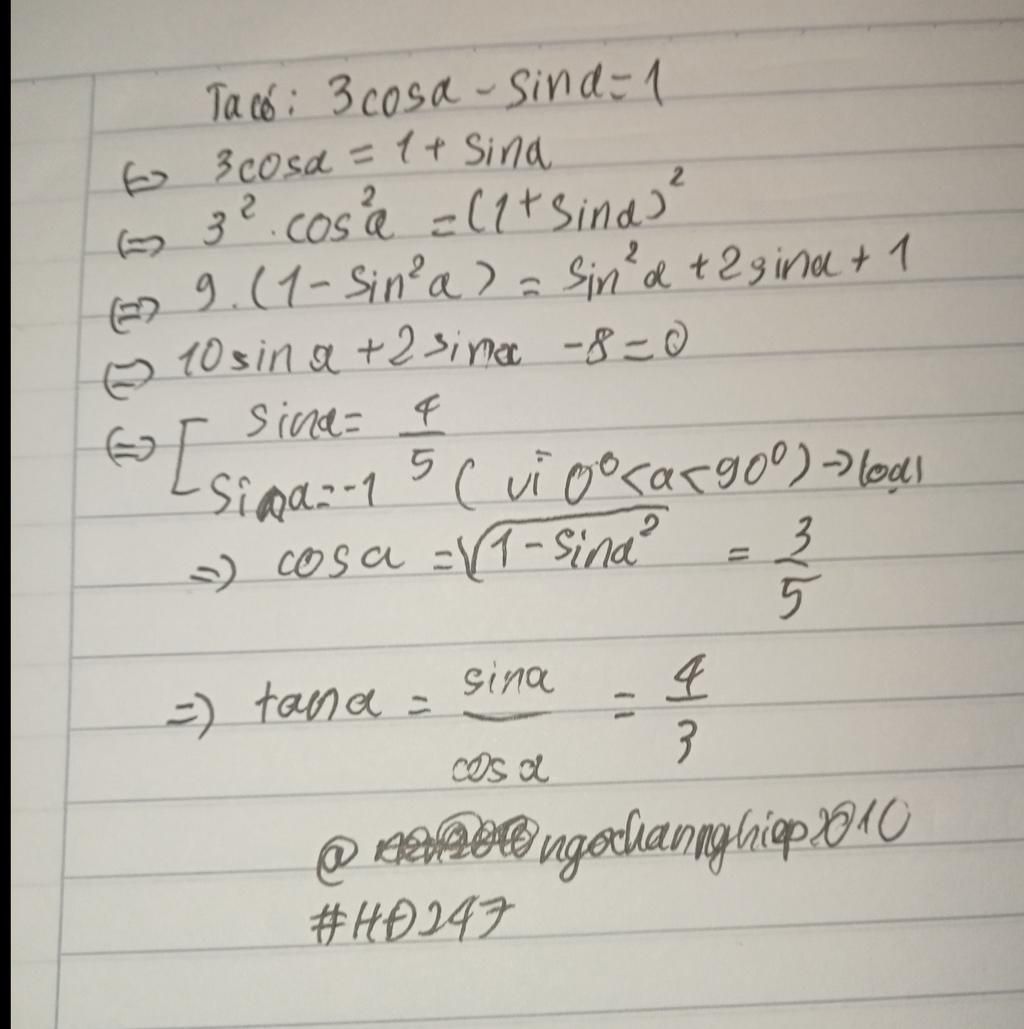 Ta có: 3cosα - sinα = 1
⇔ 3cosα = 1 + sinα
⇔ 3² . cos²α = (1 + sinα)²
⇔ 9.(1 - sin²α) = sin²α + 2sinα + 1
⇔ 10sin α + 2sinα - 8 = 0
⇔ [ sinα = 4/5
sinα = -1 (vì 0⁰ < α < 90⁰) → loại
⇒ cosα = √(1 - sinα²) = 3/5
⇒ tanα = sinα/cosα = 4/3
@ ngochannghiep2010
#HĐ247